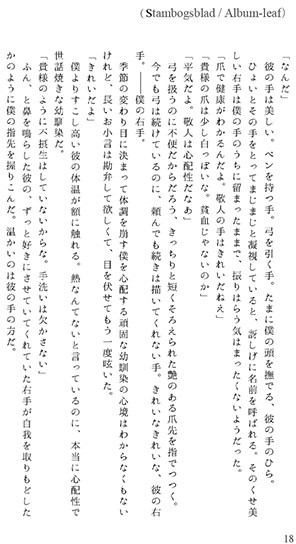 ( Stambogsblad / Album-leaf)
「なんだ」
彼の手は美しい。ペンを持つ手。弓を引く手。たまに僕の頭を撫でる、彼の手のひら。
ひょいとその手をとってまじまじと凝視していると、訝しげに名前を呼ばれる。そのくせ美
しい右手は僕の手のうちに留まったままで、振りはらう気はまったくないようだった。
「爪で健康がわかるんだよ。敬人の手はきれいだねえ」
「貴様の爪は少し白っぽいな。貧血じゃないのか」
「平気だよ。敬人は心配性だなあ」
弓を扱うのに不便だからだろう、きっちりと短くそろえられた艶のある爪先を指でつつく。
今でも弓は続けているのに、頼んでも続きは描いてくれない手。きれいなきれいな、彼の右
手。――僕の右手。
季節の変わり目に決まって体調を崩す僕を心配する頑固な幼馴染の心境はわからなくもない
けれど、長いお小言は勘弁して欲しくて、目を伏せてもう一度呟いた。
「きれいだよ」
僕よりすこし高い彼の体温が額に触れる。熱なんてないと言っているのに、本当に心配性で
世話焼きな幼馴染だ。
「貴様のように不摂生はしていないからな。手洗いは欠かさない」
ふん、と鼻を鳴らした彼の、ずっと好きにさせていてくれていた右手が自我を取りもどした
かのように僕の指先を握りこんだ。温かいのは彼の手の方だ。
18